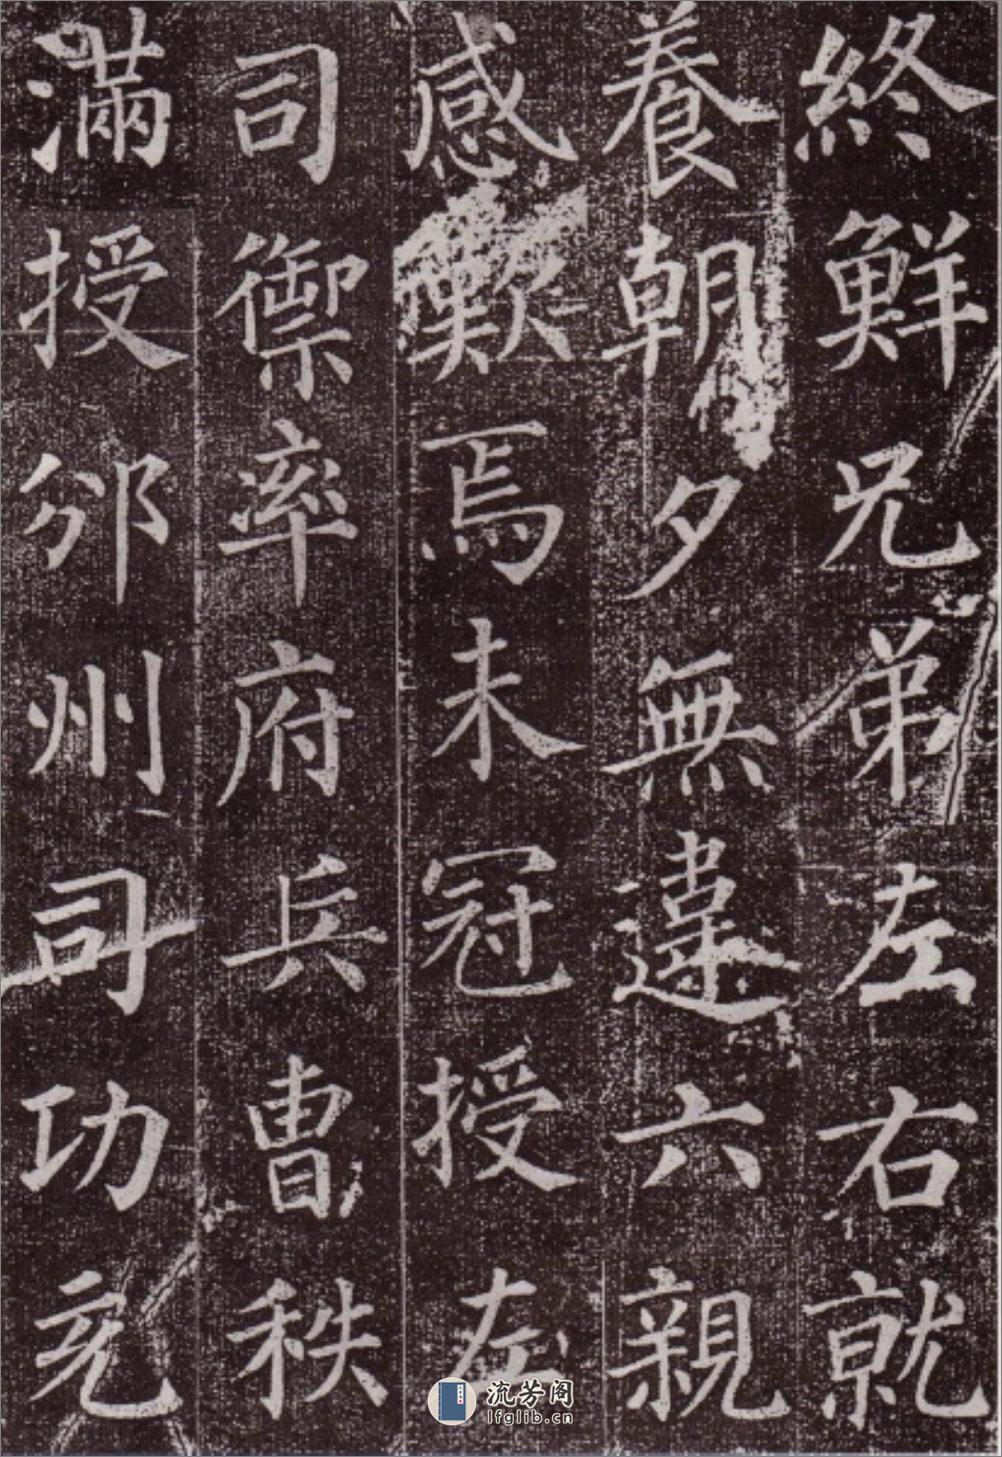 終鮮兄弟左右就
養朝夕無違六親
感歎焉未冠授左
司禦率府兵曹秩
滿授邠州司功充
流芳阁
lfglib.cn